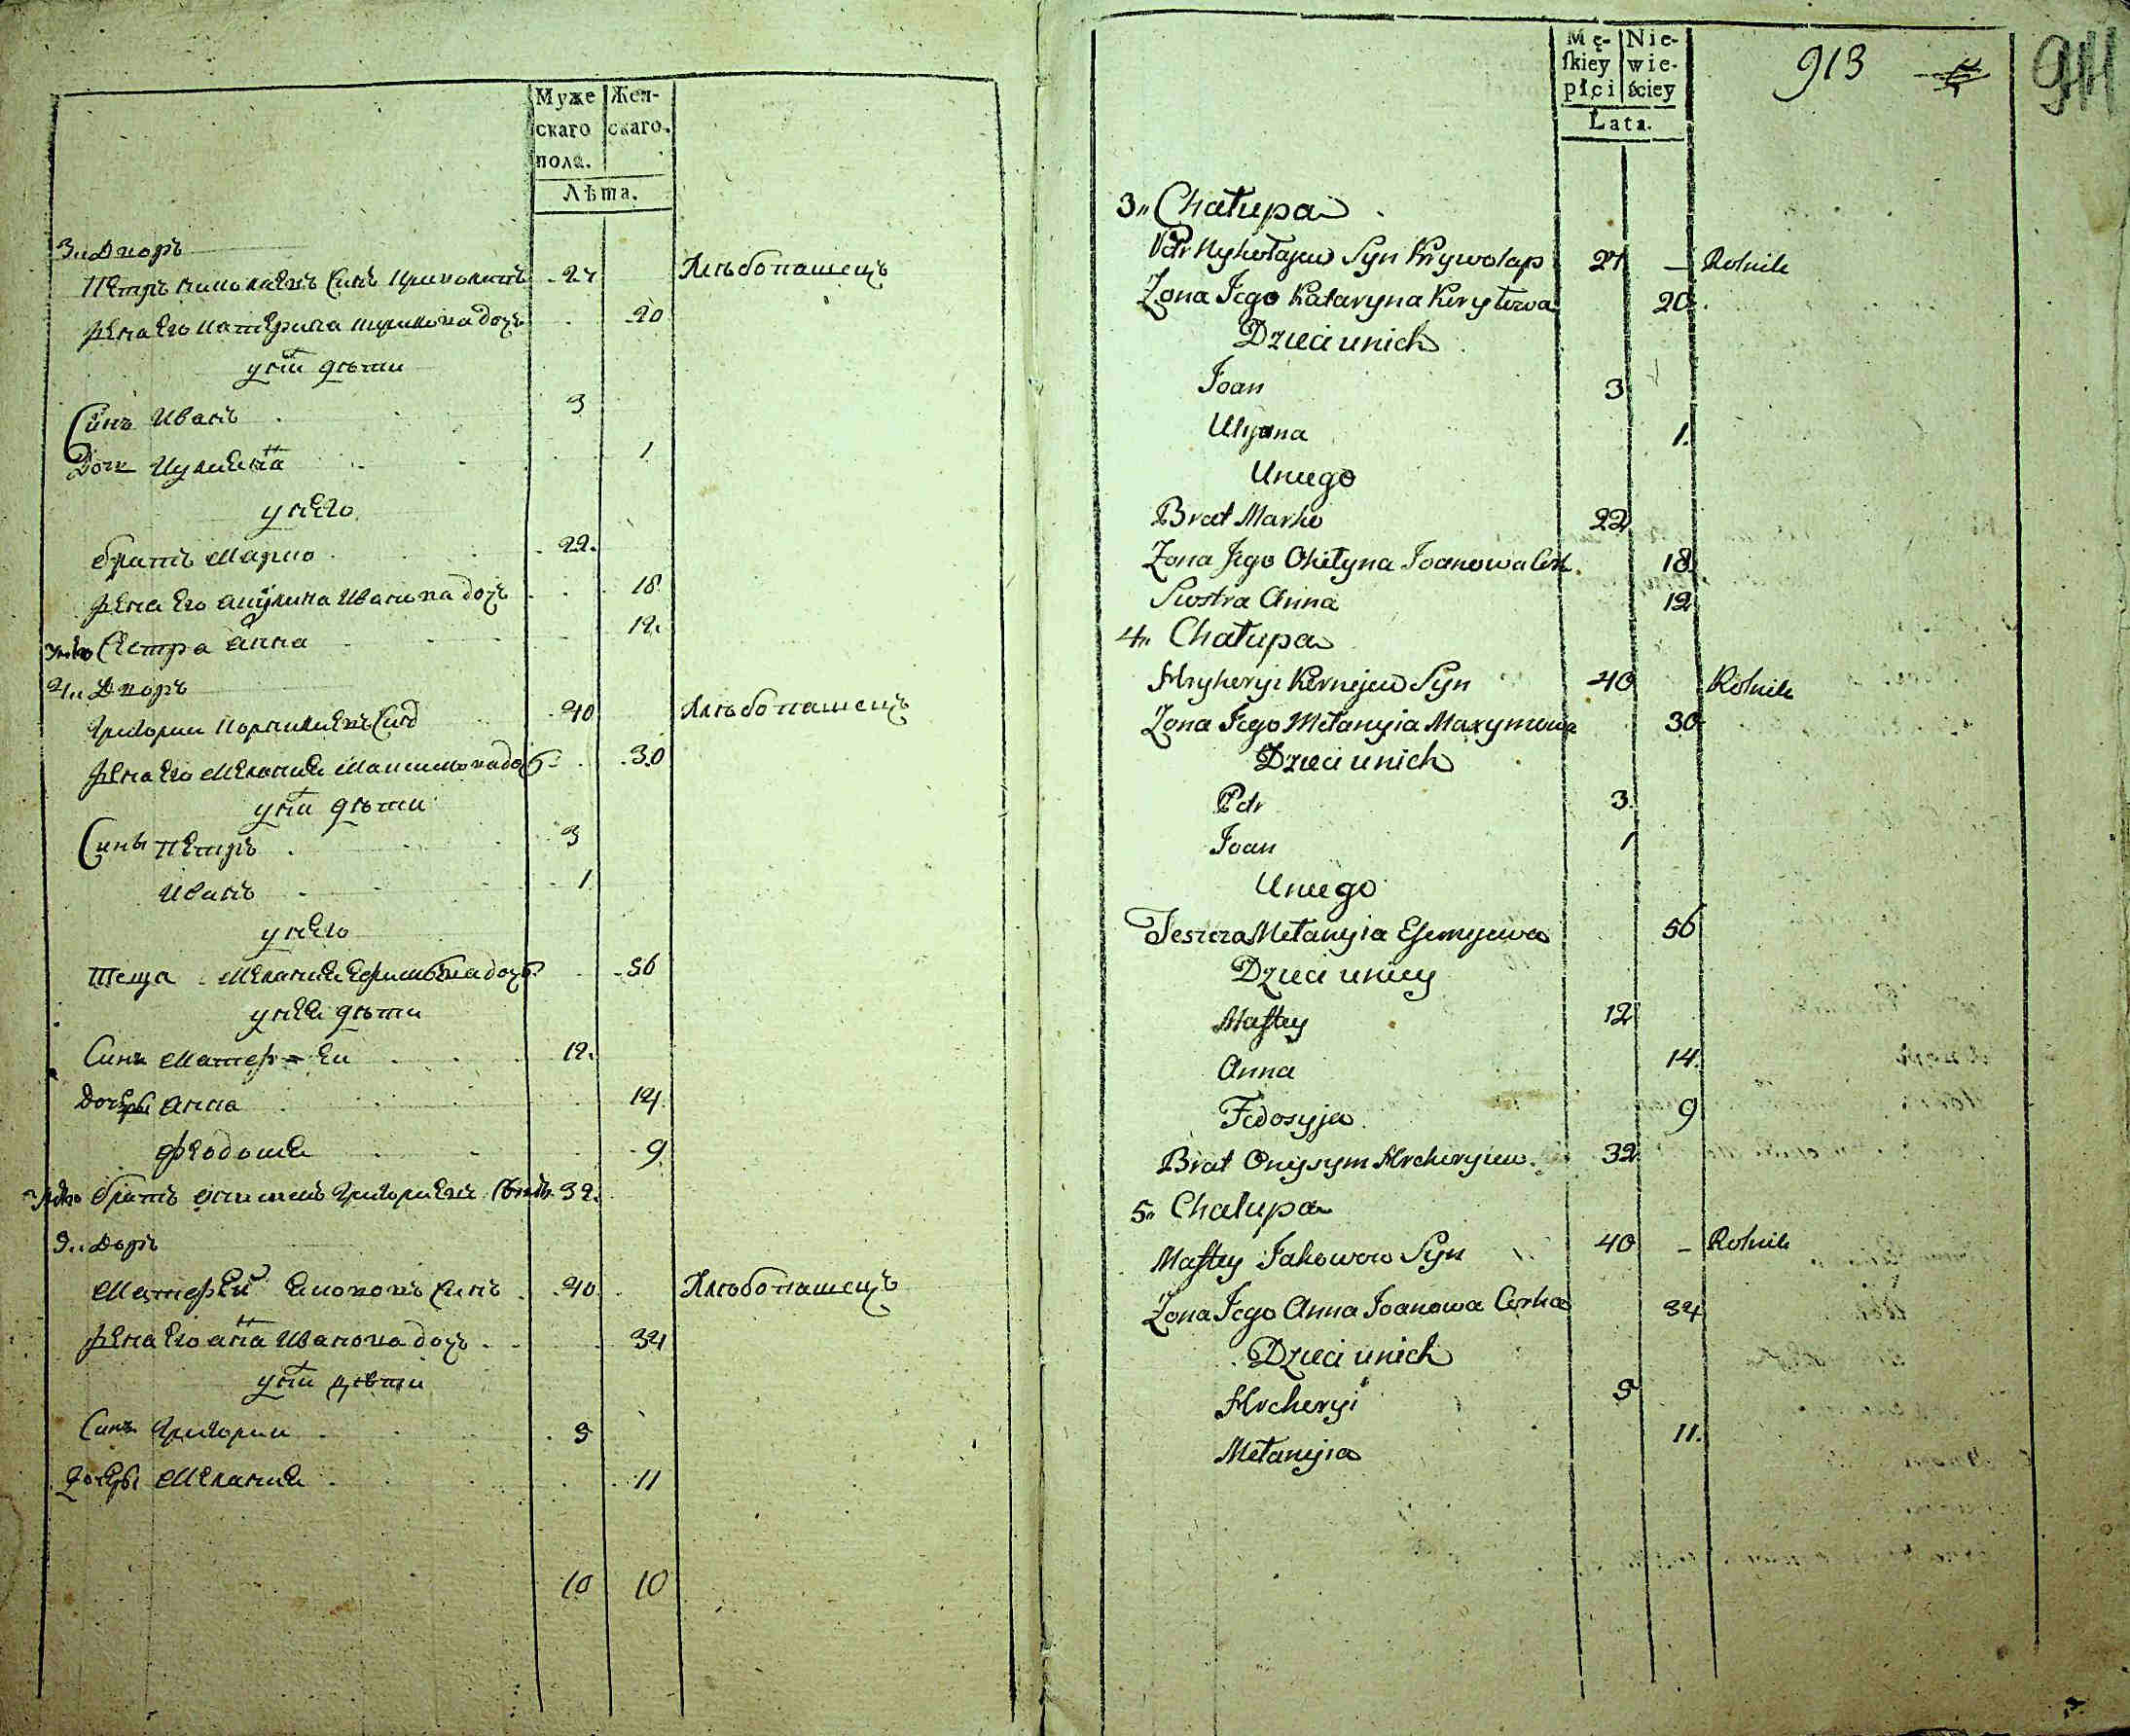 Муже Жен-
скаго скаго.
пола.
Лѣта.
3„ Дворъ
Петръ Николаевъ Синъ Криволапъ 24 Хлѣбопашецъ
Жена Его Катерина Кирилова дочь 20
у них дѣти
Синъ Иванъ 3
Дочь Иулиена 1
у него
братъ Марко 22.
Жена Его Акулина Иванова дочь 18
Сестра Анна 12.
4„ Дворъ
Григории Корнилиевъ Синъ 40 Хлѣбопашецъ
Жена Его Мелание Максимова дочь 30
у них дѣти
Сины Петръ 3
Иванъ 1
у него
теща Мелание Ефимова дочь 56
у нее дѣти
Синъ Матфеи 12.
Дочери Анна 14
Феодосие 9
братъ Онисимъ Григориевъ Синъ 32.
5„ Дворъ
Матфеи Якововъ Синъ 40 Хлѣбопашецъ
Жена Его Анна Иванова дочь 34
у них дѣти
Синъ Григории 9
Дочери Мелание 11
10 10
Mę- Nie-
ſkiey wie-
płci ściey
Lata.
913
3„ Chałupa
Petr Nykołajew Syn Krywołap 24 – Rolnik
Zona Jego Kataryna Keryłowa 20
Dzieci u nich
Joan 3
Ulyana 1.
U niego
Brat Marko 22
Zona Jego Okiłyna Joanowa Cork. 18
Siostra Anna 12
4„ Chałupa
Hryhoryi Kornijew Syn 40 Rolnik
Zona Jego Mełanyia Maxymowa 30
Dzieci u nich
Petr 3
Joan 1
U niego
Teszcza Mełanyia Efemyewa 56
Dzieci u niey
Maftey 12
Anna 14.
Fedosyja 9
Brat Onysym Hrehoryiew 32
5„ Chałupa
Maftey Jakowow Syn 40 – Rolnik
Zona Jego Anna Joanowa Corka 34
Dzieci u nich
Hrehoryi 9
Mełanyia 11.